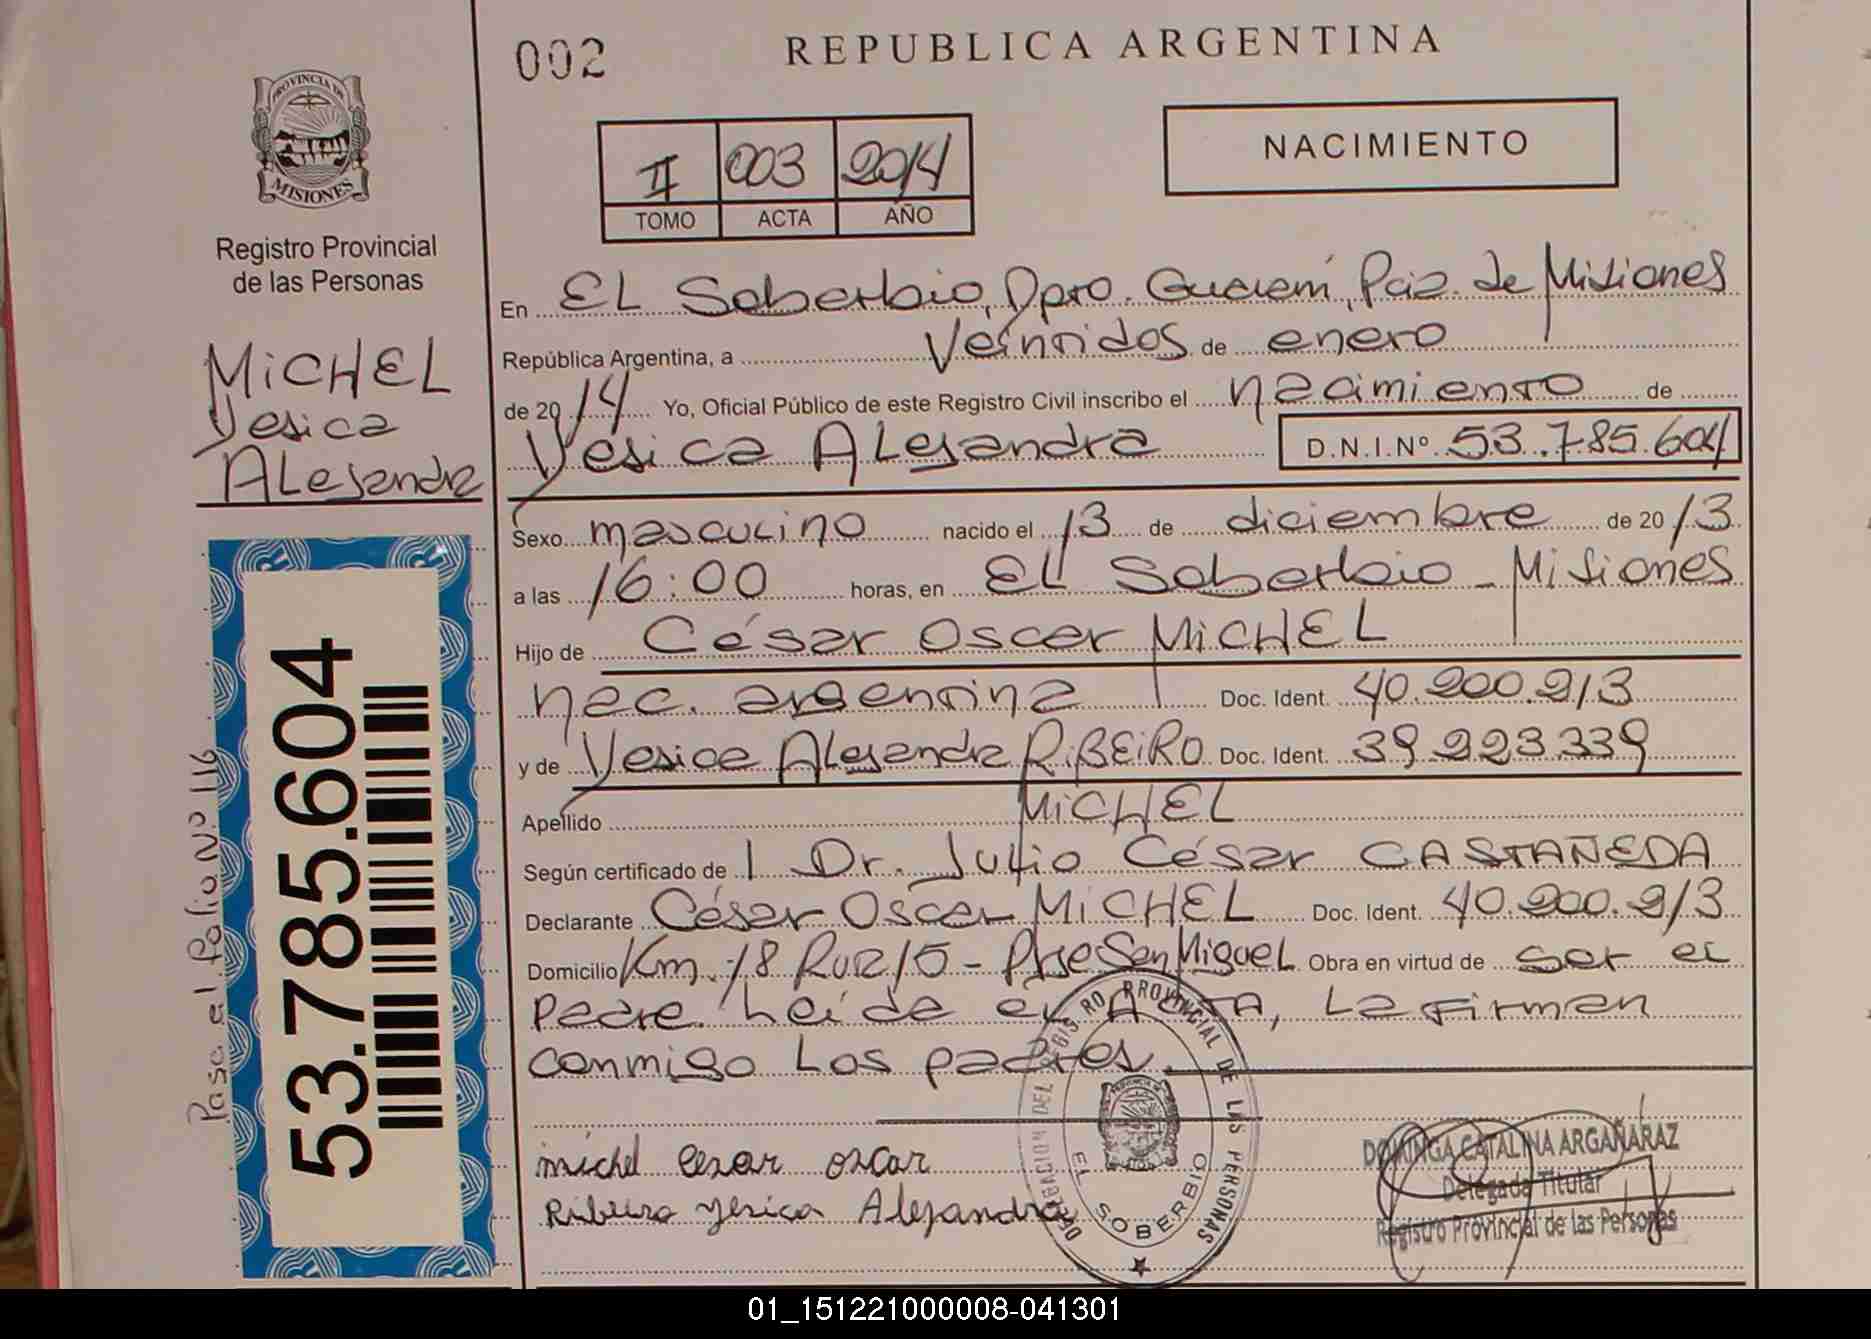 002
REPUBLICA ARGENTINA
PROVINCIA DE
MISIONES
Registro Provincial
de las Personas
II 003 2014
TOMO ACTA AÑO
NACIMIENTO
MiCHEL
Yesica
ALejandra
53.785.604
Pasa al Folio N.º 116
En EL Soberbio, Dpto. Guaraní, Pcia. de Misiones
República Argentina, a Veintidos de enero
de 2014 Yo, Oficial Público de este Registro Civil inscribo el nacimiento de
Yesica ALejandra D.N.I.Nº 53.785.604
Sexo masculino nacido el 13 de diciembre de 2013
a las 16:00 horas, en EL Soberbio - Misiones
Hijo de César Oscar MiCHEL
nac. argentina Doc. Ident. 40.200.213
y de Yesica ALejandra RiBEiRO Doc. Ident. 39.223.339
Apellido MiCHEL
Según certificado de 1 Dr. Julio César CASTAÑEDA
Declarante César Oscar MiCHEL Doc. Ident. 40.200.213
Domicilio Km. 18 Ruta 15 - Pje San Miguel Obra en virtud de ser el
padre. Leída el ACTA, La Firman
conmigo Los padres.
michel Cezar oscar
Ribeiro yesica Alejandra
DELEGACION DEL REGISTRO PROVINCIAL DE LAS PERSONAS
EL SOBERBIO
DOMINGA CATALINA ARGAÑARAZ
Delegada Titular
Registro Provincial de las Personas
01_151221000008-041301